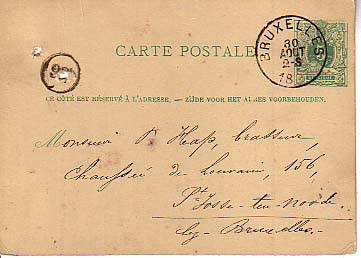 CARTE POSTALE
BRUXELLES
30
AOUT
2-S
18
CE CÔTÉ EST RÉSERVÉ À L'ADRESSE. — ZIJDE VOOR HET ADRES VOORBEHOUDEN.
Monsieur P Hap, brasseur,
Chaussée de Louvain, 156,
St Josse-ten-noode.
lez-Bruxelles.